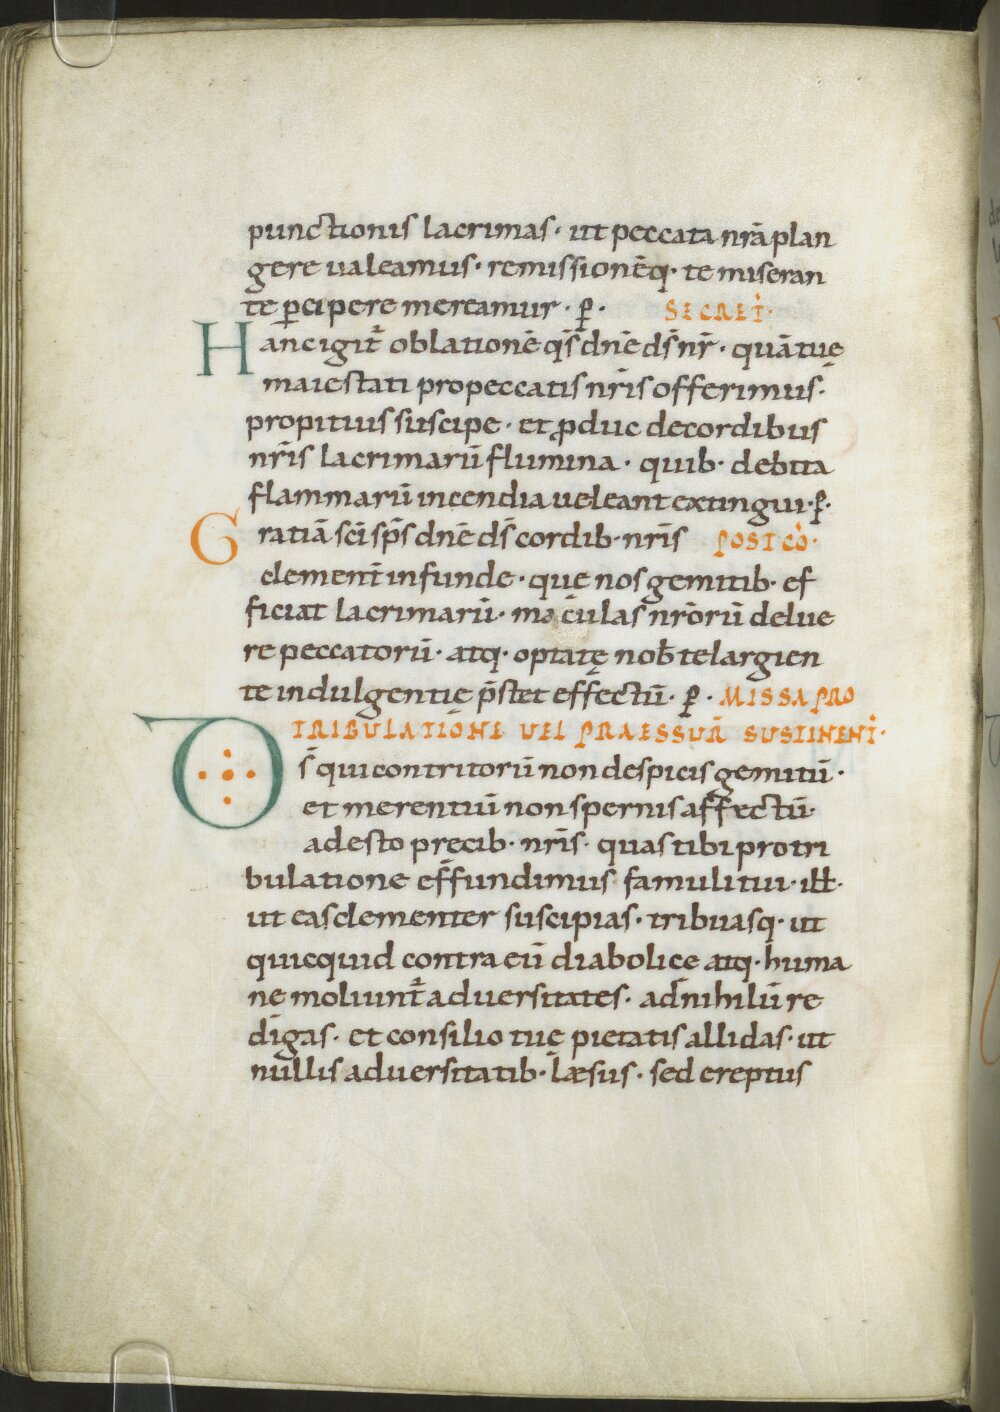 punctionis lacrimas· ut peccata nr̄a plan
gere ualeamus· remissionēq· te miseran
te ꝑcipere mereamur· ꝑ· SECRET̄·
Hanc igit̄ oblationē qs̄ dnē ds̄ nr̄· quā tuę
maiestati pro peccatis nr̄is offerimus·
propitius suscipe· et ꝓduc de cordibus
nr̄is lacrimarū flumina· quib· debita
flammarū incendia ueleant extingui· ꝑ·
Gratiā sc̄i sp̄s dnē ds̄ cordib· nr̄is POST CŌ·
clement̄ infunde· que nos gemitib· ef
ficiat lacrimarū· maculas nr̄orū delue
re peccatorū· atq· optatę nob̄ te largien
te indulgentię p̄stet effectū· ꝑ· MISSA PRO
TRIBULATIONE UEL PRAESSUR̄ SUSTINENT̄·
Ds̄ qui contritorū non despicis gemitū·
et merentiū non spernis affectū·
adesto precib· nr̄is· quas tibi pro tri
bulatione effundimus famuli tui· ill̄·
ut eas clementer suscipias· tribuasq· ut
quicquid contra eū diabolice atq· huma
ne moliunt̄ aduersitates· ad nihilū re
digas· et consilio tuę pietatis allidas· ut
nullis aduersitatib· læsus· sed ereptus